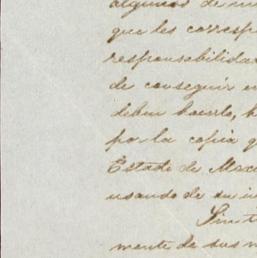 algunos de
que les corresp
responsabilida
de conseguir e
deben hacerlo, h
por la copia q
Estado de Mexi
usando de su i
Sin t
mente de sus m